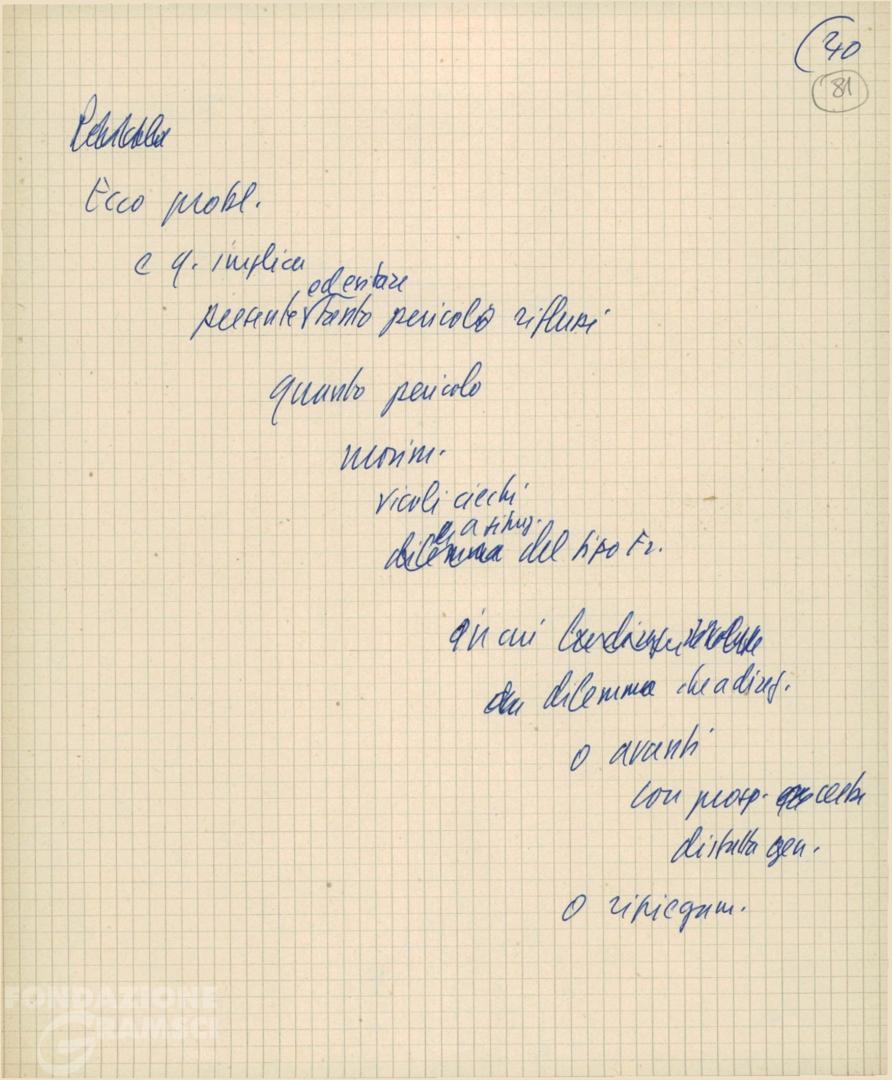 (40
81
Ecco probl.
e q. implica
ed evitare
presente tanto pericolo riflussi
quanto pericolo
movim.
vicoli ciechi
a situaz.
dilemma del tipo Fr.
in cui
dilemma che a direz.
o avanti
con prosp. certa
disfatta gen.
o ripiegam.
FONDAZIONE
GRAMSCI